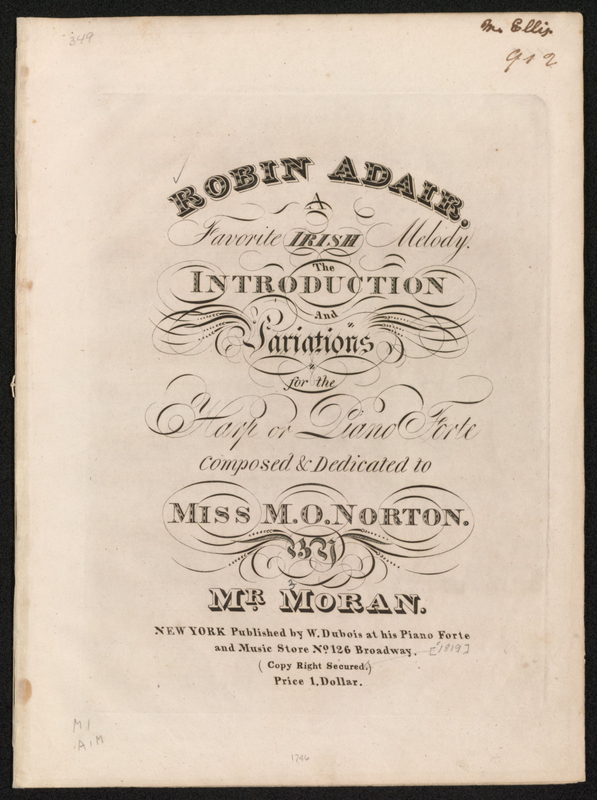 349
M. Ellis
912
ROBIN ADAIR.
A
Favorite IRISH Melody.
The
INTRODUCTION
And
Variations
for the
Harp or Piano Forte
Composed & Dedicated to
MISS M.O. NORTON.
BY
MR. MORAN.
NEW YORK Published by W. Dubois at his Piano Forte
and Music Store No. 126 Broadway. [1819]
(Copy Right Secured.)
Price 1. Dollar.
M1
.A1M
1746